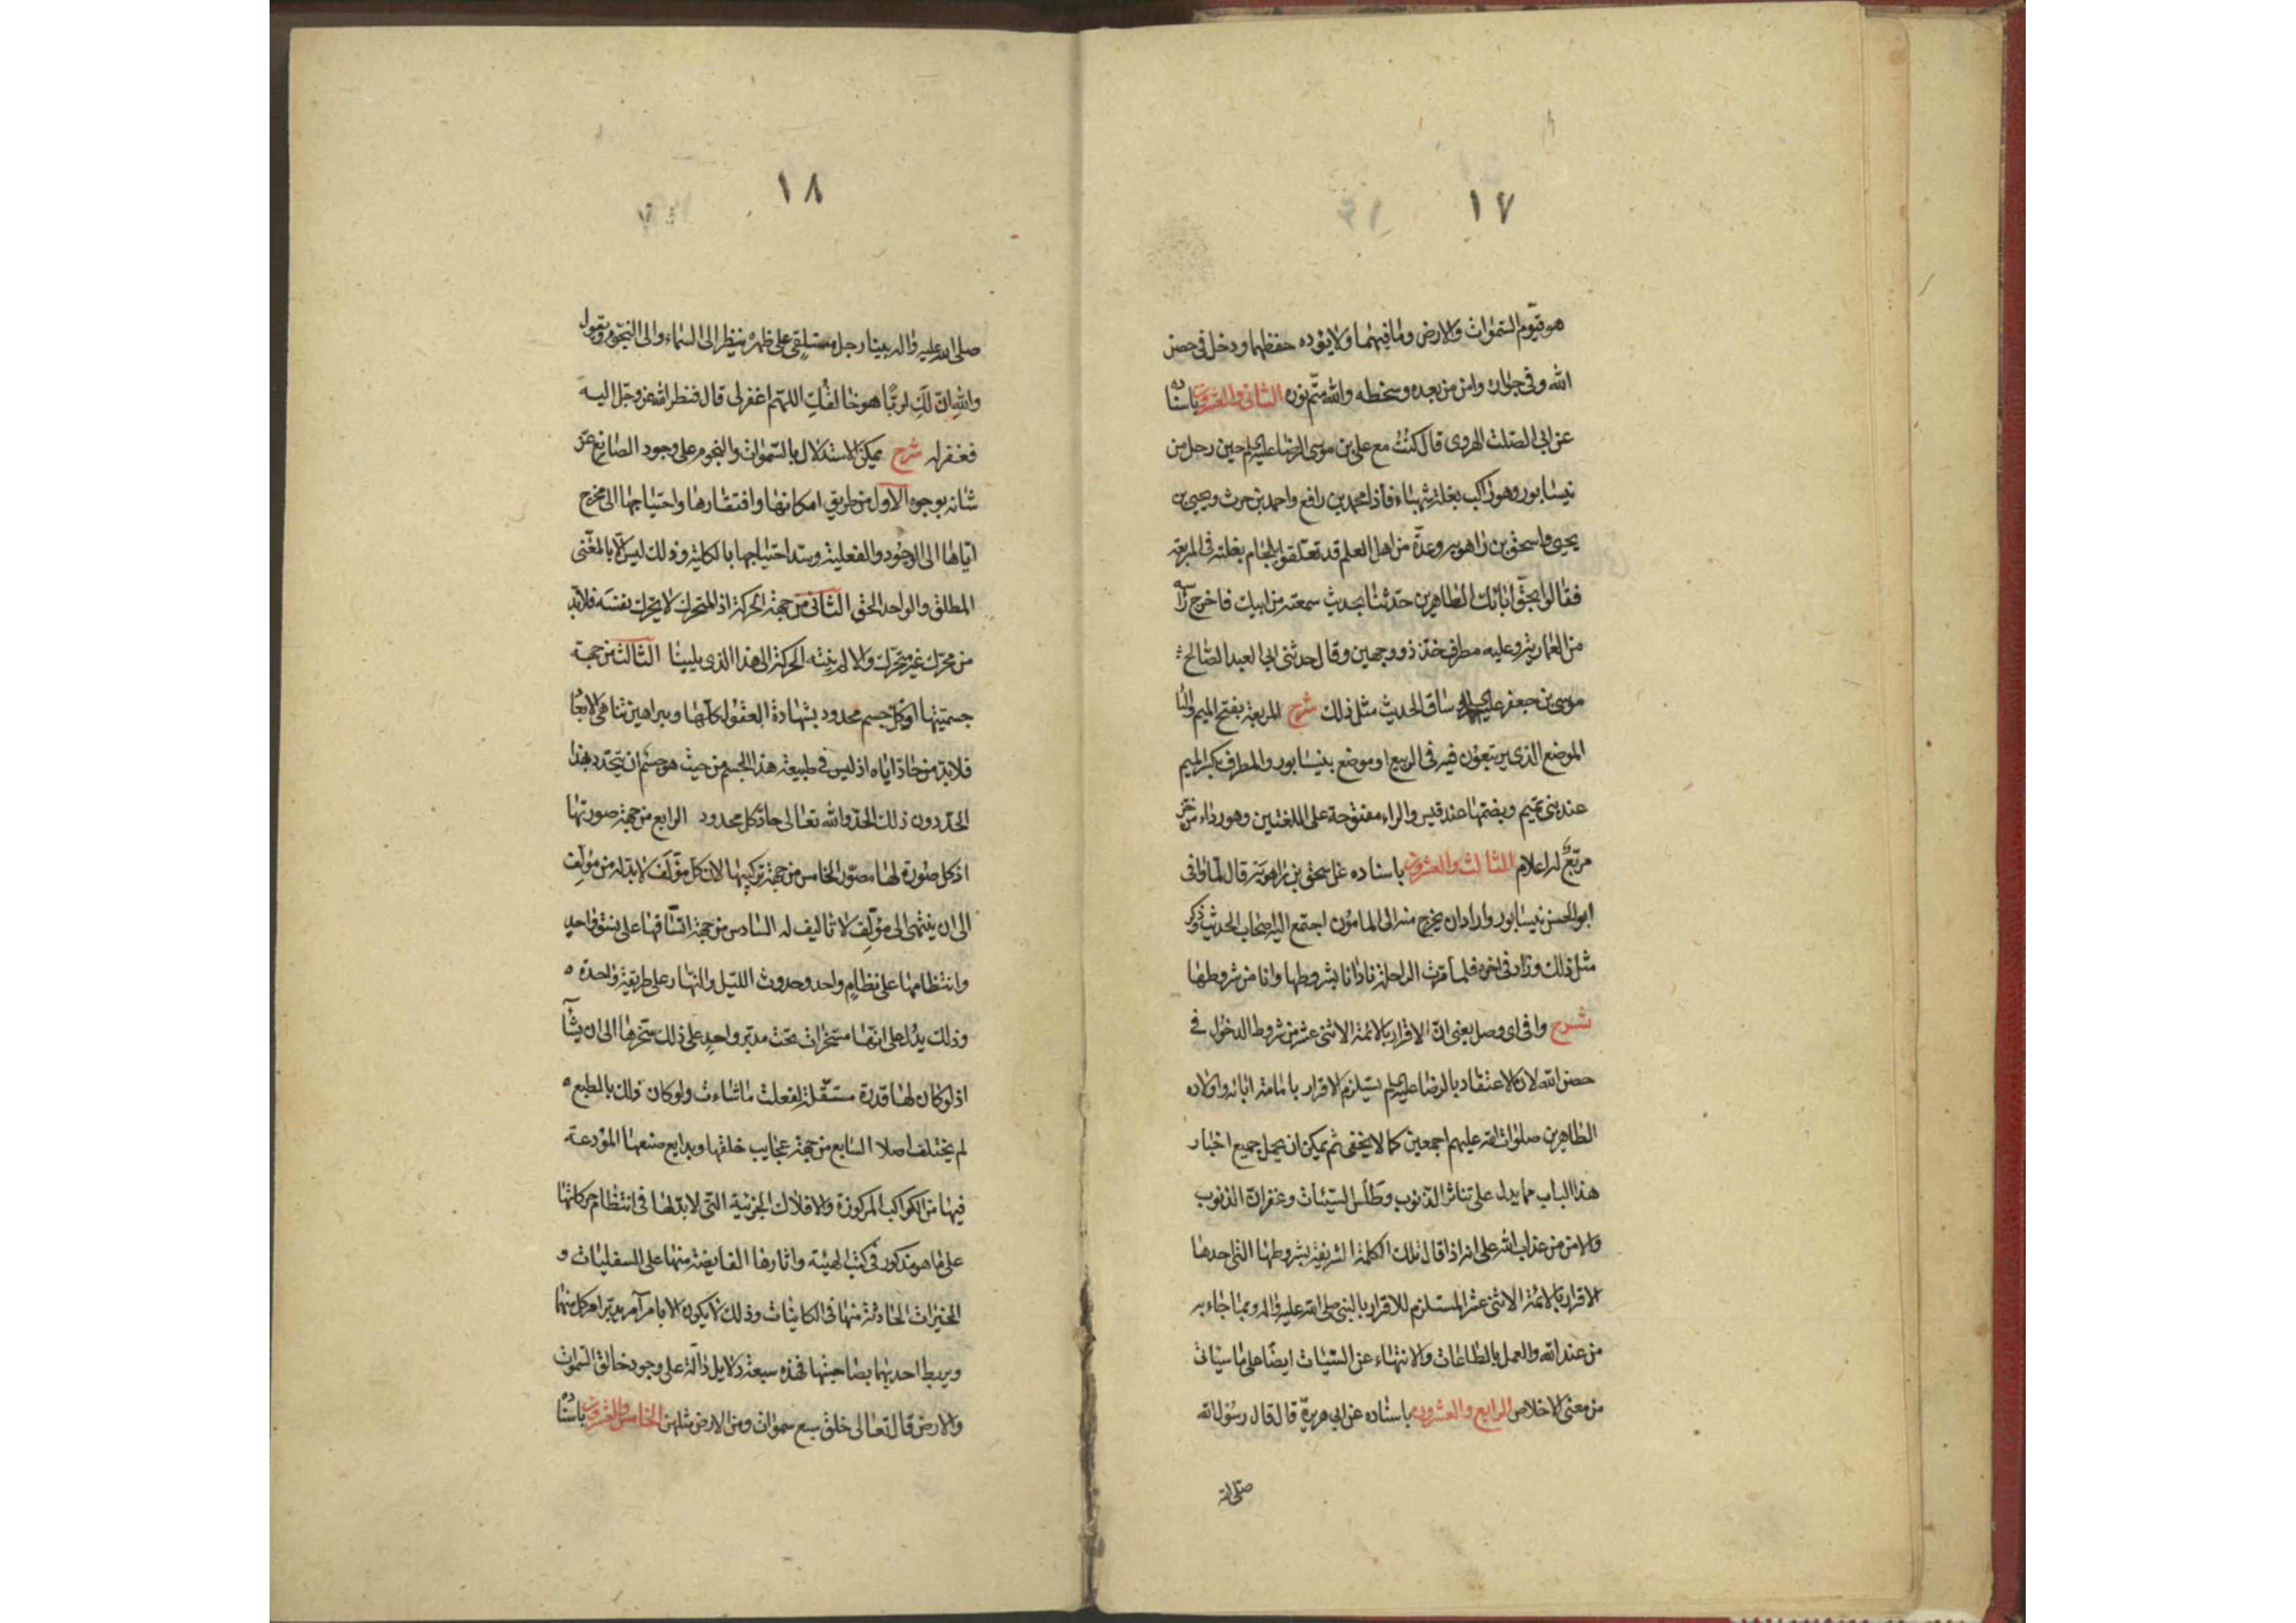 ١٧
هو قيّوم السّمٰوات والارض وما فيهما ولا يؤده حفظهما ودخل فى حصن
الله وفى جواره وامن من بعده وسخطه والله متمّ نوره الثانى والعشرون باسناده
عن ابى الصّلت الهروى قال كنتُ مع على بن موسى الرضا عليه السلم حين رحل من
نيسابور وهو راكب بغلة شهباء فاذا محمد بن رافع واحمد بن حرث ويحيى بن
يحيى واسحق بن راهويه وعدّة من اهل العلم قد تعلقوا بلجام بغلته فى المربعة
فقالوا بحقّ ابائك الطاهرين حدّثنا بحديث سمعته من ابيك فاخرج رأسه
من العمارية وعليه مطرف خزّ ذو وجهين وقال حدثنى ابى العبد الصّالح
موسى بن جعفر عليه وساق الحديث مثل ذلك شرح المربعة بفتح الميم والبا
الموضع الذى يرتبعون فيه فى الربيع او موضع بنيسابور والمطرف بكسر الميم
عند بنى تميم وبضمّها عند قيس والراء مفتوحة على اللغتين وهو رداء من خزّ
مربّعٌ له اعلام الثالث والعشرون باسناده عن اسحق بن راهويه قال لمّا وافى
ابو الحسن نيسابور واراد ان يخرج منه الى المامون اجتمع اليه اصحاب الحديث وذكر
مثل ذلك وزاد فى اخره فلما مرّت الراحلة نادانا بشروطها وانا من شروطها
شرح وافى اى وصل يعنى انّ الاقرار بالائمة الاثنى عشر من شروط الدخول فى
حصن الله لان الاعتقاد بالرضا عليه السلم يستلزم الاقرار بامامة ابائه واولاده
الطاهرين صلوات الله عليهم اجمعين كما لا يخفى ثم يمكن ان يحمل جميع اخبار
هذا الباب مما يدل على تناثر الذنوب وطَلْس السّيئات وغفران الذنوب
والامن من عذاب الله على انه اذا قال تلك الكلمة الشريفة بشروطها التى احدها
الاقرار بالائمة الاثنى عشر المستلزم للاقرار بالنبى صلى الله عليه واله وبما جاء به
من عند الله والعمل بالطاعات والانتهاء عن السّيّئات ايضًا على ما سياتى
من معنى الاخلاص الرابع والعشرون باسناده عن ابى هريرة قال قال رسول الله
صلى الله
١٨
صلى الله عليه واله بينا رجل مستلقٍى على ظهره ينظر الى السماء والى النجوم ويقول
والله ان لَكِ لربًّا هو خالقُكِ اللهمّ اغفر لى قال فنظر الله عز وجل اليه
فغفر له شرح يمكن الاستدلال بالسّمٰوات والنجوم على وجود الصانع عزّ
شانه بوجوه الاول من طريق امكانها وافتقارها واحتياجها الى مخرج
ايّاها الى الوجود والفعلية وسدّ احتياجها بالكلية وذلك ليس الّا بالمغنى
المطلق والواحد الحق الثانى من جهة الحركة اذ المتحرك لا يتحرّك بنفسه فلابّد
من محرّك غير متحرّك والا لم ينته الحركة الى هذا الذى يلينا الثالث من جهة
جسميّتها اذ كل جسم محدود بشهادة العقول كلها وبراهين تناهى الابعا
فلابد من حادّ اياه اذ ليس فى طبيعة هذا الجسم من حيث هو جسم ان يتحدّد بهذا
الحدّ دون ذلك الحدّ والله تعالى حادّ كل محدود الرابع من جهة صورتها
اذ كل صورة لها مصوّر الخامس من جهة تركيبها لانّ كلّ مؤلَّف لابد له من مؤلِّف
الى ان ينتهى الى مؤلِّف لا تاليف له السادس من جهة اتّساقها على نسق واحدٍ
وانتظامها على نظامٍ واحد وحدوث اللّيل والنّهار على طريقة واحدة
وذلك يدُل على انّها مسخّرات تحت مدبّر واحدٍ على ذلك سخّرها الى ان يشآء
اذ لو كان لها قدرة مستقلة لفعلت ما شاءت ولو كان ذلك بالطبع
لم يختلف اصلا السابع من جهة عجايب خلقها وبدايع صنعها المودعة
فيها من الكواكب المركوزة والافلاك الجزئية التى لابدّ لها فى انتظام حركاتها
على ما هو مذكور فى كتب الهيئة واثارها الفايضة منها على السفليات و
الخيرات الحادثة منها فى الكاينات وذلك لا يكون الا بامر آمر يدبّر امر كل منها
ويربط احديهما بصاحبتها فهذه سبعة دلايل دالّة على وجود خالق السّموات
والارض قال تعالى خلق سبع سموات ومن الارض مثلهن الخامس والعشرون باسناده